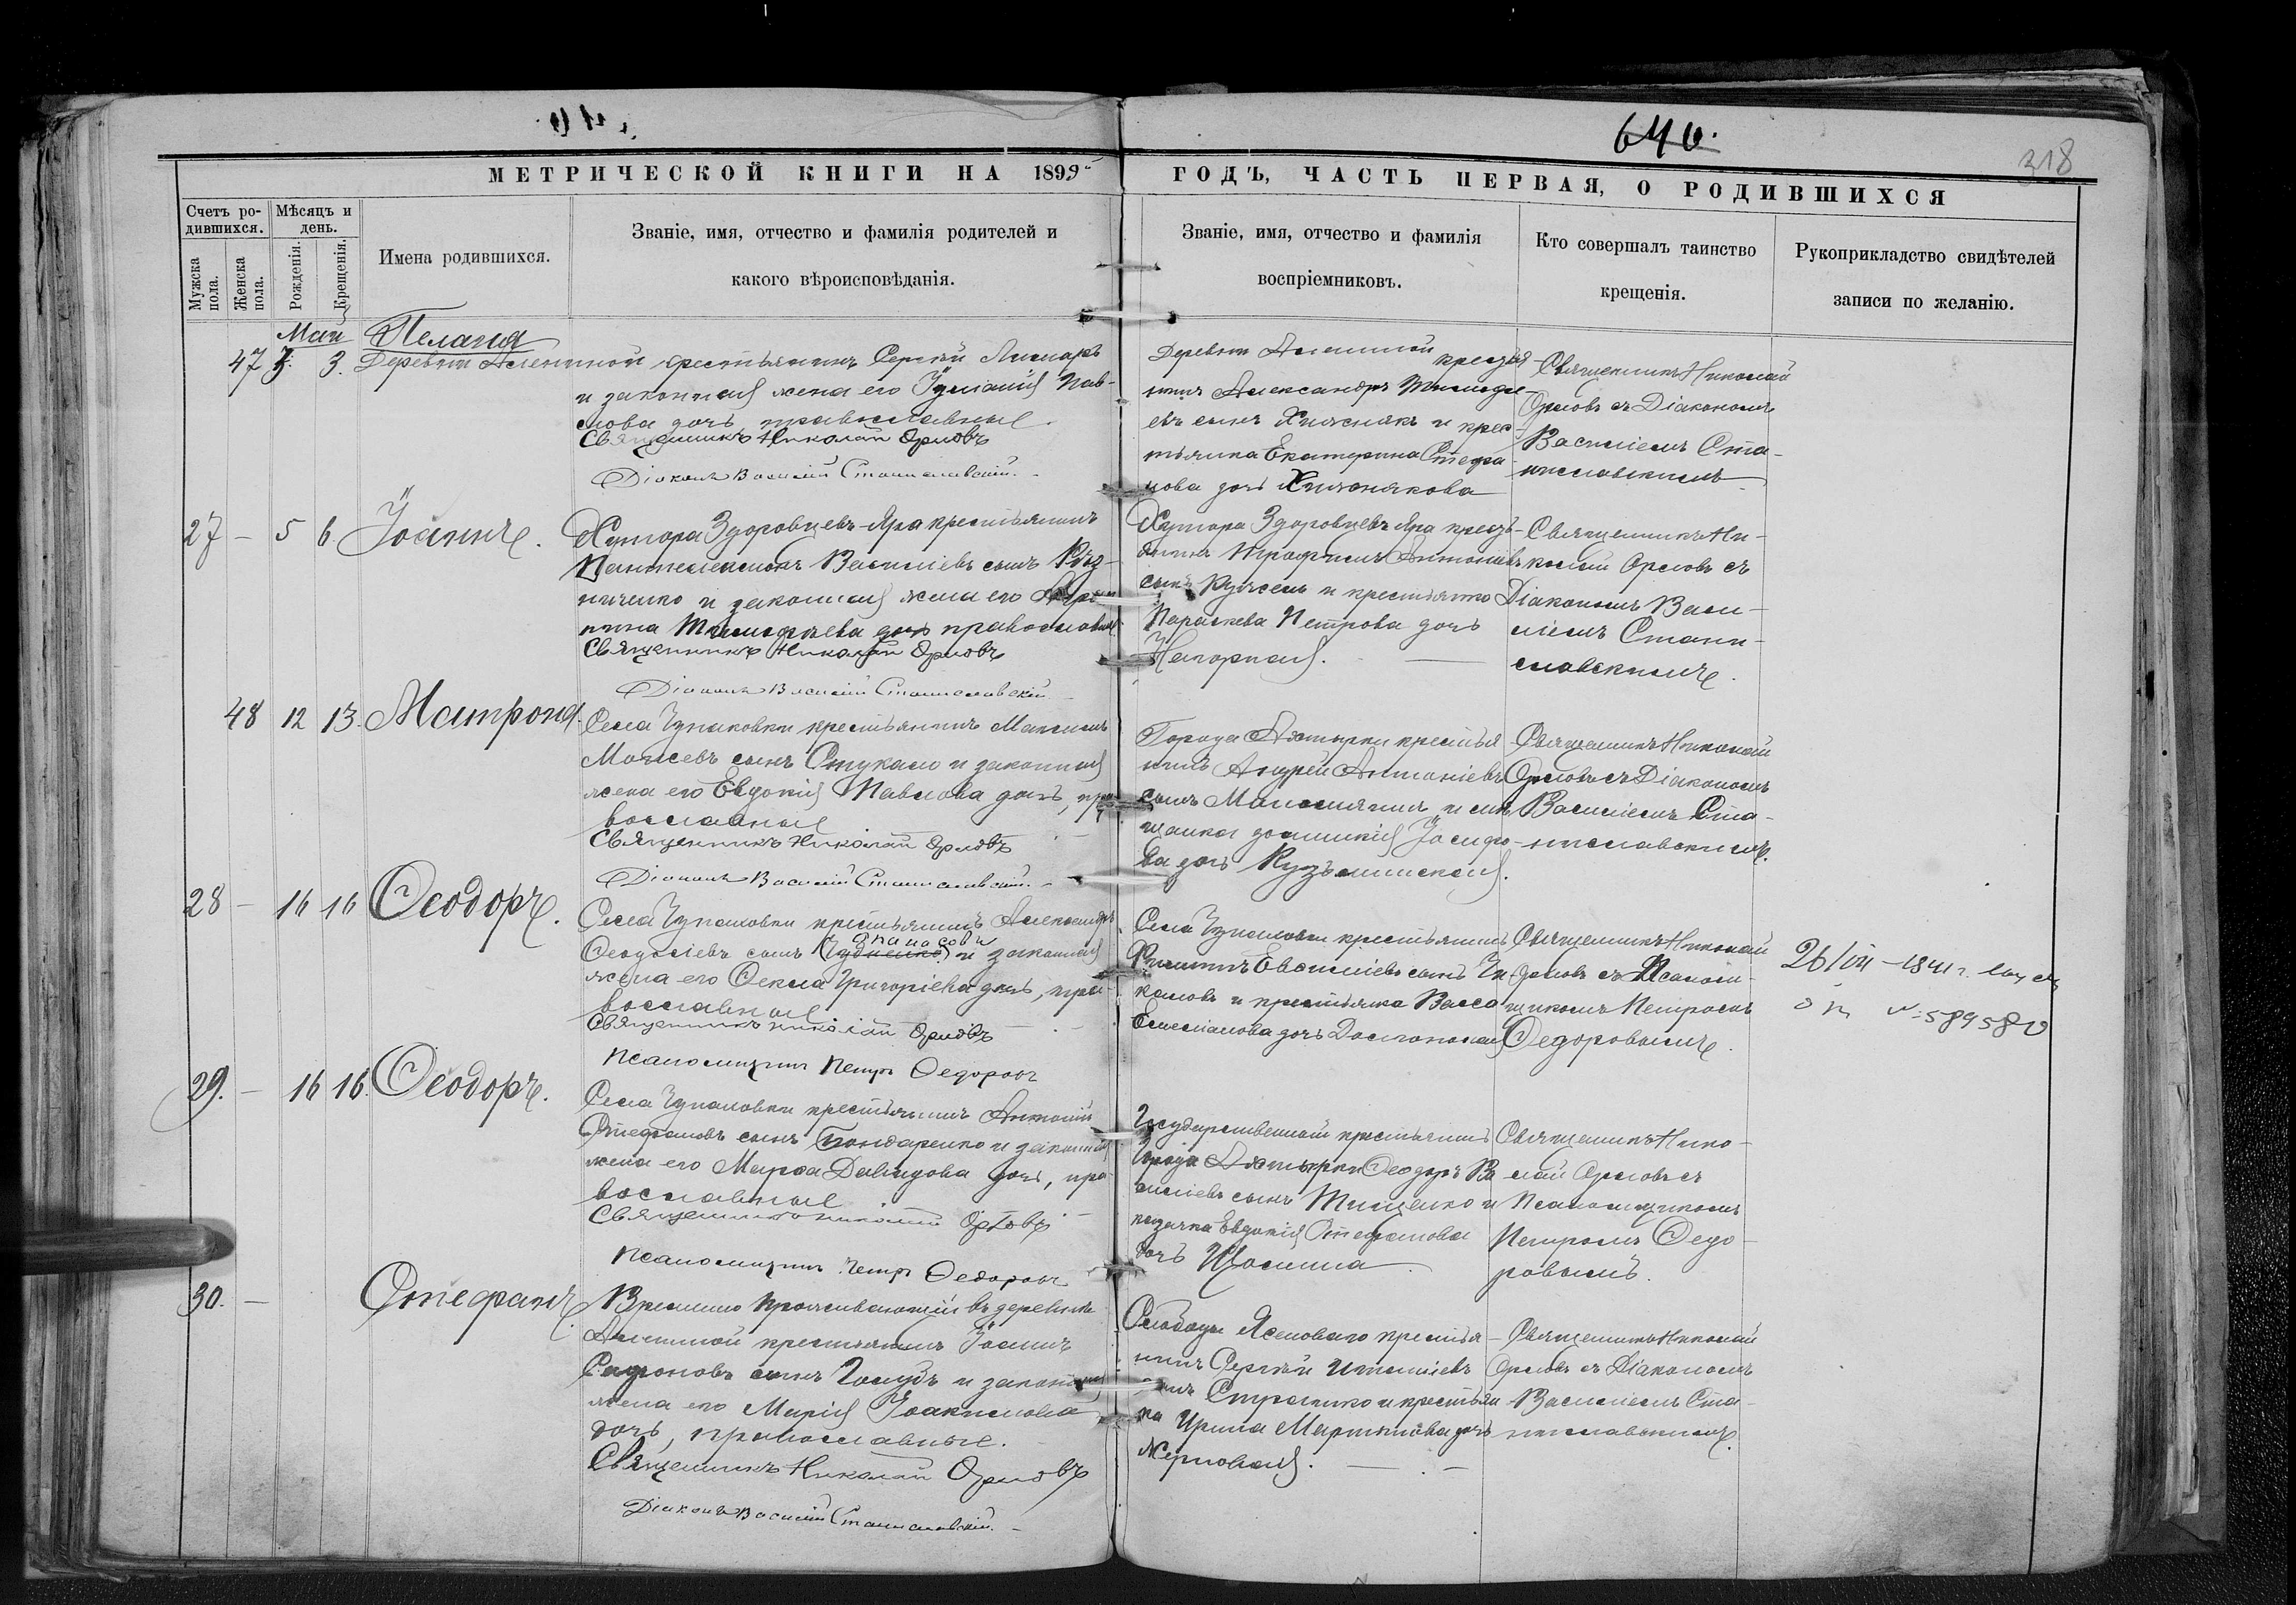 640.
318
МЕТРИЧЕСКОЙ КНИГИ НА 1899й
ГОДЪ, ЧАСТЬ ПЕРВАЯ, О РОДИВШИХСЯ
Счетъ родившихся.
Мужска пола.
Женска пола.
Мѣсяцъ и день.
Рожденія.
Крещенія.
Имена родившихся.
Званіе, имя, отчество и фамилія родителей и
какого вѣроисповѣданія.
Званіе, имя, отчество и фамилія
воспріемниковъ.
Кто совершалъ таинство
крещенія.
Рукоприкладство свидѣтелей
записи по желанію.
Май
47 3. 3. Пелагія
крестьянинъ Сергѣй
и законная жена его Іуліанія Пав-
лова дочь православные.
Священникъ Николай Орловъ
Діаконъ Василій Станиславскій.
крестья-
нинъ Александръ Тимофе-
евъ сынъ Хижнякъ и крес-
тьянка Екатерина Стефа-
нова дочь Хижнякова
Священникъ Николай
Орловъ съ Діакономъ
Василіемъ Ста-
ниславскимъ
27 – 5 6 Іоаннъ.
Хутора Здоровцевъ-Яра крестьянинъ
Пантелеимонъ Василіевъ сынъ Рѣз-
ниченко и законная жена его
Тимофеева дочь православные
Священникъ Николай Орловъ
Діаконъ Василій Станиславскій
Хутора Здоровцевъ Яра крестья-
нинъ Трофимъ Антоніевъ
сынъ и крестьянка
Параскева Петрова дочь
Нагорная.
Священникъ Ни-
колай Орловъ съ
Діакономъ Васи-
ліемъ Стани-
славскимъ.
48 12 13. Матрона.
Села Чупаховки крестьянинъ Максимъ
Моисеевъ сынъ Стукало и законная
жена его Евдокія Павлова дочь, пра-
вославные
Священникъ Николай Орловъ
Діаконъ Василій Станиславскій. –
Города Ахтырки крестья-
нинъ Андрей Антоніевъ
сынъ и мѣ-
щанка Іосифо-
ва дочь Кузьминская.
Священникъ Николай
Орловъ съ Діакономъ
Василіемъ Ста-
ниславскимъ.
28 – 16 16 Ѳеодоръ.
Села Чупаховки крестьянинъ Александръ
Ѳеодосіевъ сынъ и законная
жена его Ѳекла Григоріева дочь, пра-
вославные
Священникъ Николай Орловъ
Псаломщикъ Петръ Ѳедоровъ
Села Чупаховки крестьянинъ
Филиппъ сынъ Чу-
каловъ и крестьянка Васса
Емеліанова дочь
Священникъ Николай
Орловъ съ Псалом-
щикомъ Петромъ
Ѳедоровымъ.
589580
29. – 16 16. Ѳеодоръ.
Села Чупаховки крестьянинъ Антоній
Стефановъ сынъ Бондаренко и законная
жена его Марѳа Давидова дочь, пра-
вославные
Священникъ Николай Орловъ
Псаломщикъ Петръ Ѳедоровъ
Государственный крестьянинъ
города Ахтырки Ѳеодоръ Ва-
силіевъ сынъ Тищенко и
казачка Евдокія Стефанова
дочь
Священникъ Нико-
лай Орловъ съ
Псаломщикомъ
Петромъ Ѳедо-
ровымъ.
30. – Стефанъ.
Временно проживающій въ деревнѣ
крестьянинъ Іоаннъ
сынъ Голубъ и законная
жена его Марія Іоакимова
дочь, православные.
Священникъ Николай Орловъ
Діаконъ Василій Станиславскій. –
Слободы Ясеноваго крестья-
нинъ Сергѣй
сынъ и крестьян-
ка Ирина Мартинова дочь
Жерновая.
Священникъ Николай
Орловъ съ Діакономъ
Василіемъ Ста-
ниславскимъ.